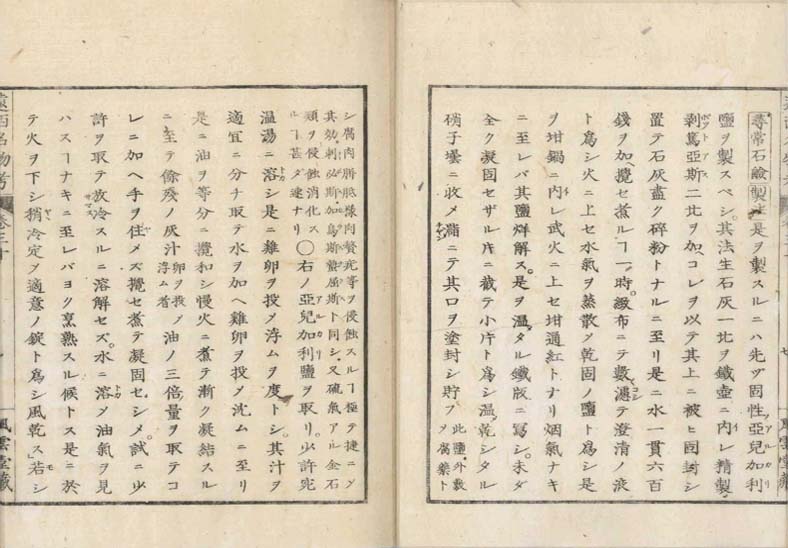 尋常石鹼製法是ヲ製スルニハ先ヅ固性亞兒加利
鹽ヲ製スベシ。其法生石灰一比ヲ鐵壺ニ内レ精製
剥篤亞斯二比ヲ加ヘコレヲ以テ其上ニ被ヒ固封シ
置テ石灰盡ク碎粉トナルニ至リ是ニ水一貫六百
錢ヲ加ヘ攪セ煮ルヿ一時。緻布ニテ數濾テ澄清ノ液
ト爲シ火ニ上セ水氣ヲ蒸散ノ乾固ノ鹽ト爲シ是
ヲ坩鍋ニ内レ武火ニ上セ坩通紅トナリ烟氣ナキ
ニ至レバ其鹽烊解ス。是ヲ温タル鐵版ニ寫シ。未ダ
全ク凝固セザル片ニ截テ小片ト爲シ温乾シタル
硝子壜ニ收メ滿ニテ其口ヲ塗封シ貯フ 此鹽外敷ヲ腐藥ト
シ腐肉胼胝樣肉贅疣等ヲ侵蝕スルヿ極テ捷ニノ
其効刺必斯加烏斯蟄屈斯ト同シ。又硫氣アル金石
類ヲ侵蝕消化スルヿ甚ダ速ナリ ○右ノ亞兒加利鹽ヲ取リ。少許宛
温湯ニ溶シ是ニ雞卵ヲ投メ浮ムヲ度トシ。其汁ヲ
適宜ニ分チ取テ水ヲ加ヘ雞卵ヲ投メ沈ムニ至リ
是ニ油ヲ等分ニ攪和シ慢火ニ煮テ漸ク凝結スル
ニ至テ偖殘ノ灰汁 卵ヲ投メ浮ム者 油ノ三倍量ヲ取テコ
レニ加ヘ手ヲ住メズ攪セ煮テ凝固セシメ。試ニ少
許ヲ取テ放冷スルニ溶解セズ。水ニ溶メ油氣ヲ見
ハスヿナキニ至レバヨク烹熟スル候トス是ニ於
テ火ヲ下シ稍冷定ヲ適意ノ錠ト爲シ風乾ス」若シ
遠西名物考
卷三十
七
風雲堂藏